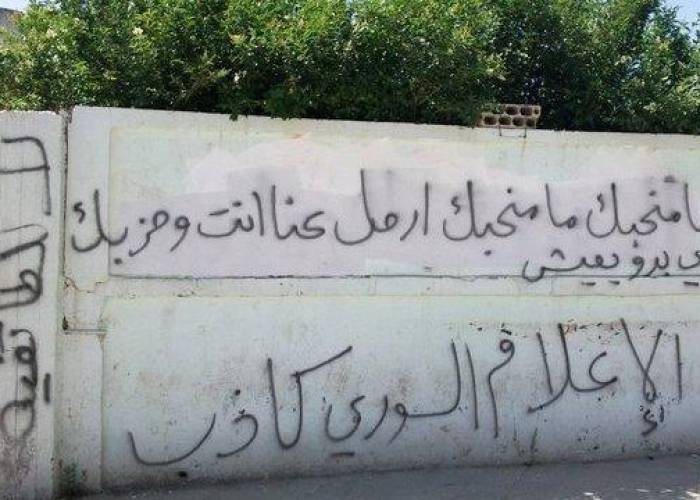 مامنحبك مامنحبك ارحل عنا انت وحزبك
ي بدو يعيش
الإعلام السوري كاذب